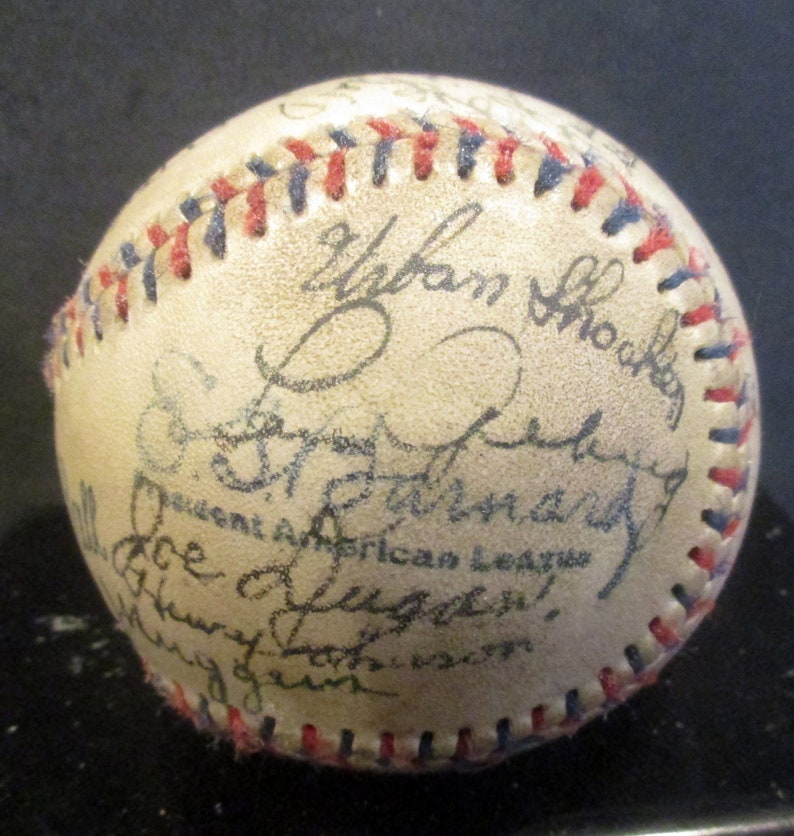 Urban Shocker
Lou Gehrig
E.S. Barnard
President American League
Joe Dugan
Johnson
Huggins